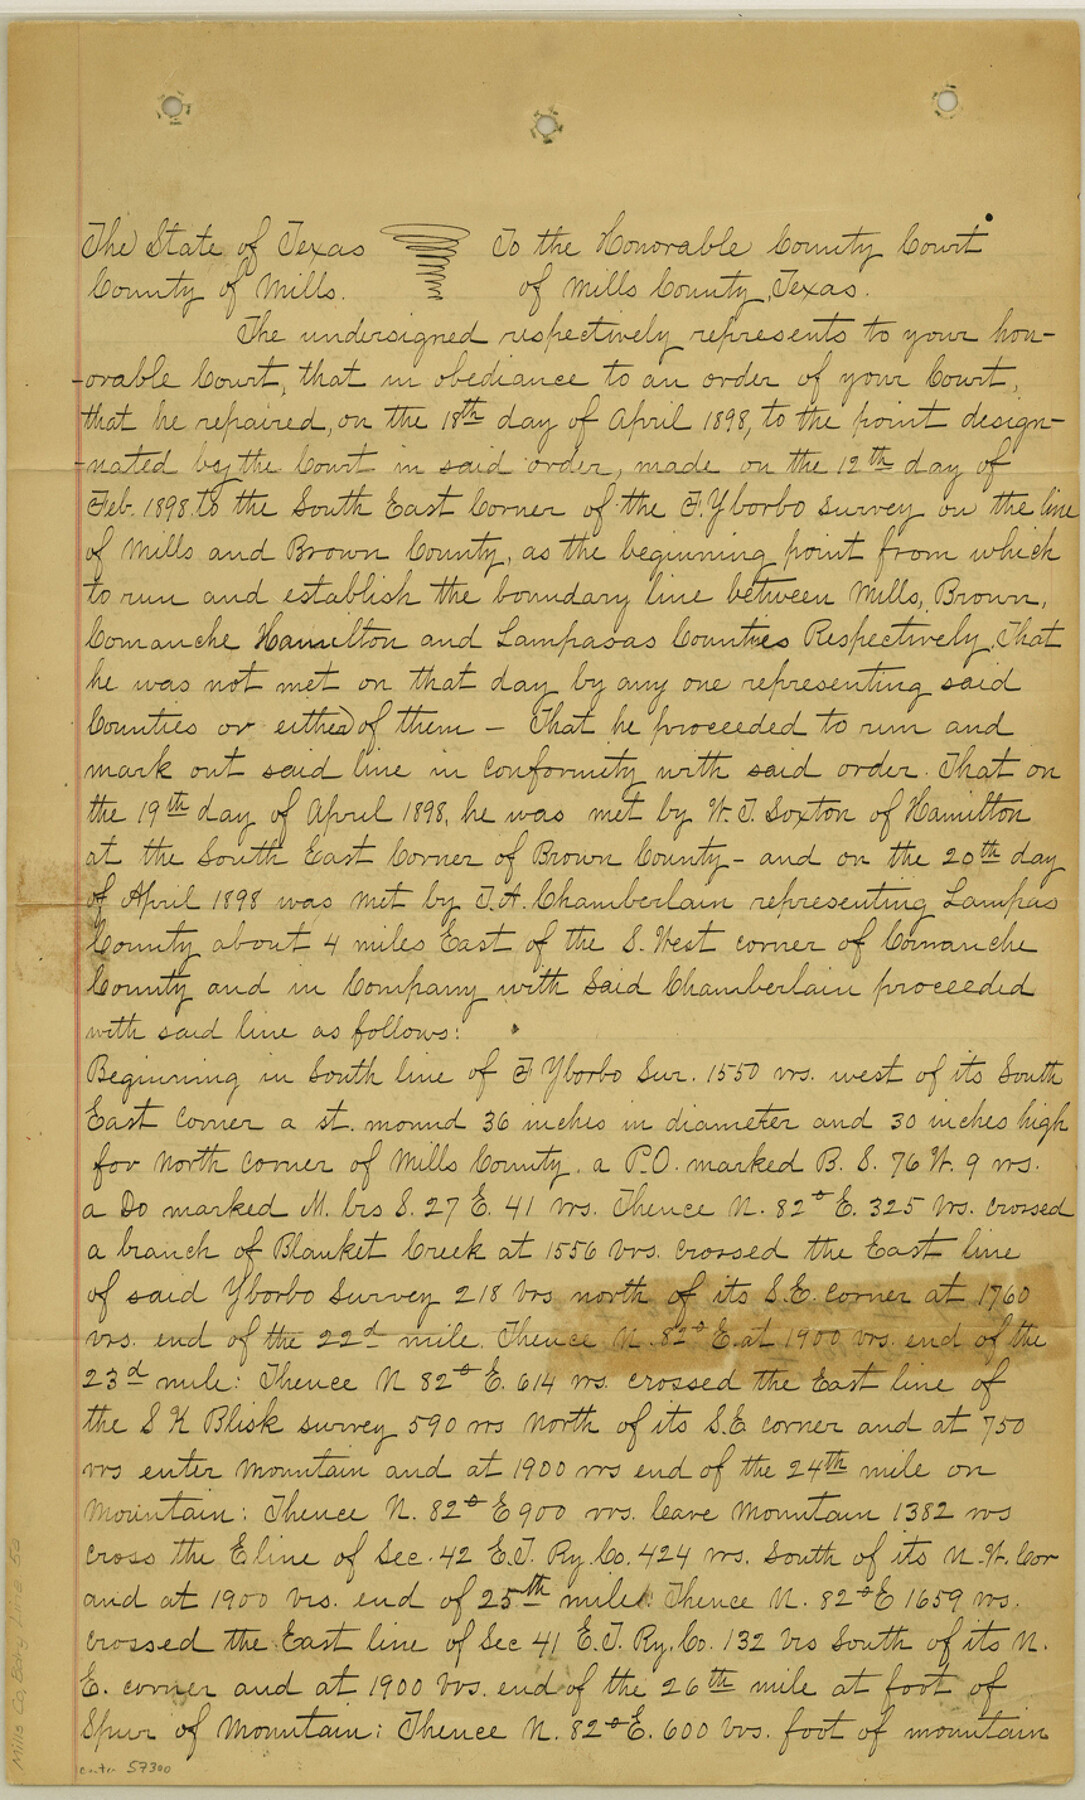 The State of Texas To the Honorable County Court
County of Mills. of Mills County, Texas.
The undersigned respectively represents to your hon-
-orable Court, that in obediance to an order of your Court,
that he repaired, on the 18th day of April 1898, to the point design-
-nated by the Court in said order, made on the 12th day of
Feb. 1898. to the South East Corner of the F. Yborbo survey on the line
of Mills and Brown County, as the beginning point from which
to run and establish the boundary line between Mills, Brown,
Comanche Hamilton and Lampasas Counties Respectively. That
he was not met on that day by any one representing said
Counties or either of them - That he proceeded to run and
mark out said line in conformity with said order. That on
the 19th day of April 1898, he was met by W. T. Soxton of Hamilton
at the South East Corner of Brown County - and on the 20th day
of April 1898 was met by J. A. Chamberlain representing Lampas
County about 4 miles East of the S. West corner of Comanche
County and in Company with said Chamberlain proceeded
with said line as follows:
Beginning in South line of F Yborbo Sur. 1550 vrs. west of its South
East Corner a st. mound 36 inches in diameter and 30 inches high
for North corner of Mills County. a P.O. marked B. S. 76 W. 9 vrs.
a Do marked M. brs S. 27 E. 41 vrs. Thence N. 82° E. 325 vrs. crossed
a branch of Blanket Creek at 1556 vrs. crossed the East line
of said Yborbo Survey 218 vrs north of its S.E. corner at 1760
vrs. end of the 22d mile. Thence N. 82° E. at 1900 vrs. end of the
23d mile: Thence N 82° E. 614 vrs. crossed the East line of
the S K Blisk survey 590 vrs North of its S.E. corner and at 750
vrs enter mountain and at 1900 vrs end of the 24th mile on
Mountain: Thence N. 82° E 900 vrs. leave mountain 1382 vrs
cross the E line of Sec. 42 E.T. Ry. Co. 424 vrs. South of its N.W. Cor
and at 1900 vrs. end of 25th mile: Thence N. 82° E 1659 vrs.
crossed the East line of Sec 41 E.T. Ry. Co. 132 vrs South of its N.
E. corner and at 1900 vrs. end of the 26th mile at foot of
Spur of Mountain: Thence N. 82° E. 600 vrs. foot of mountain
Mills Co. Bdry File 5a
counter 57300